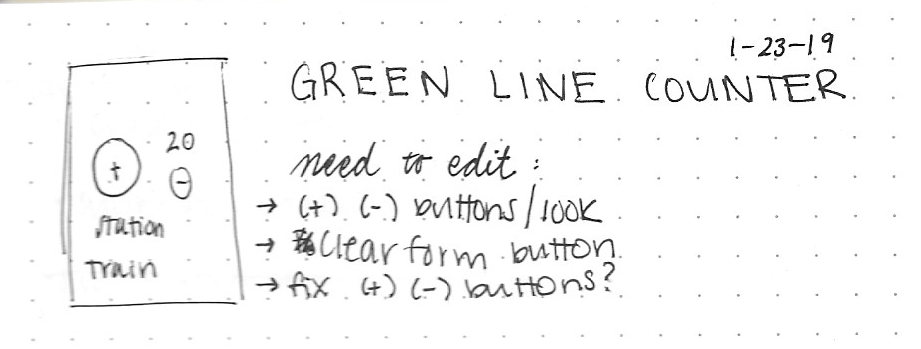 1-23-19
GREEN LINE COUNTER
20
+
-
station
train
need to edit:
→ (+) (-) buttons/look
→ Clear form button
→ fix (+) (-) buttons?